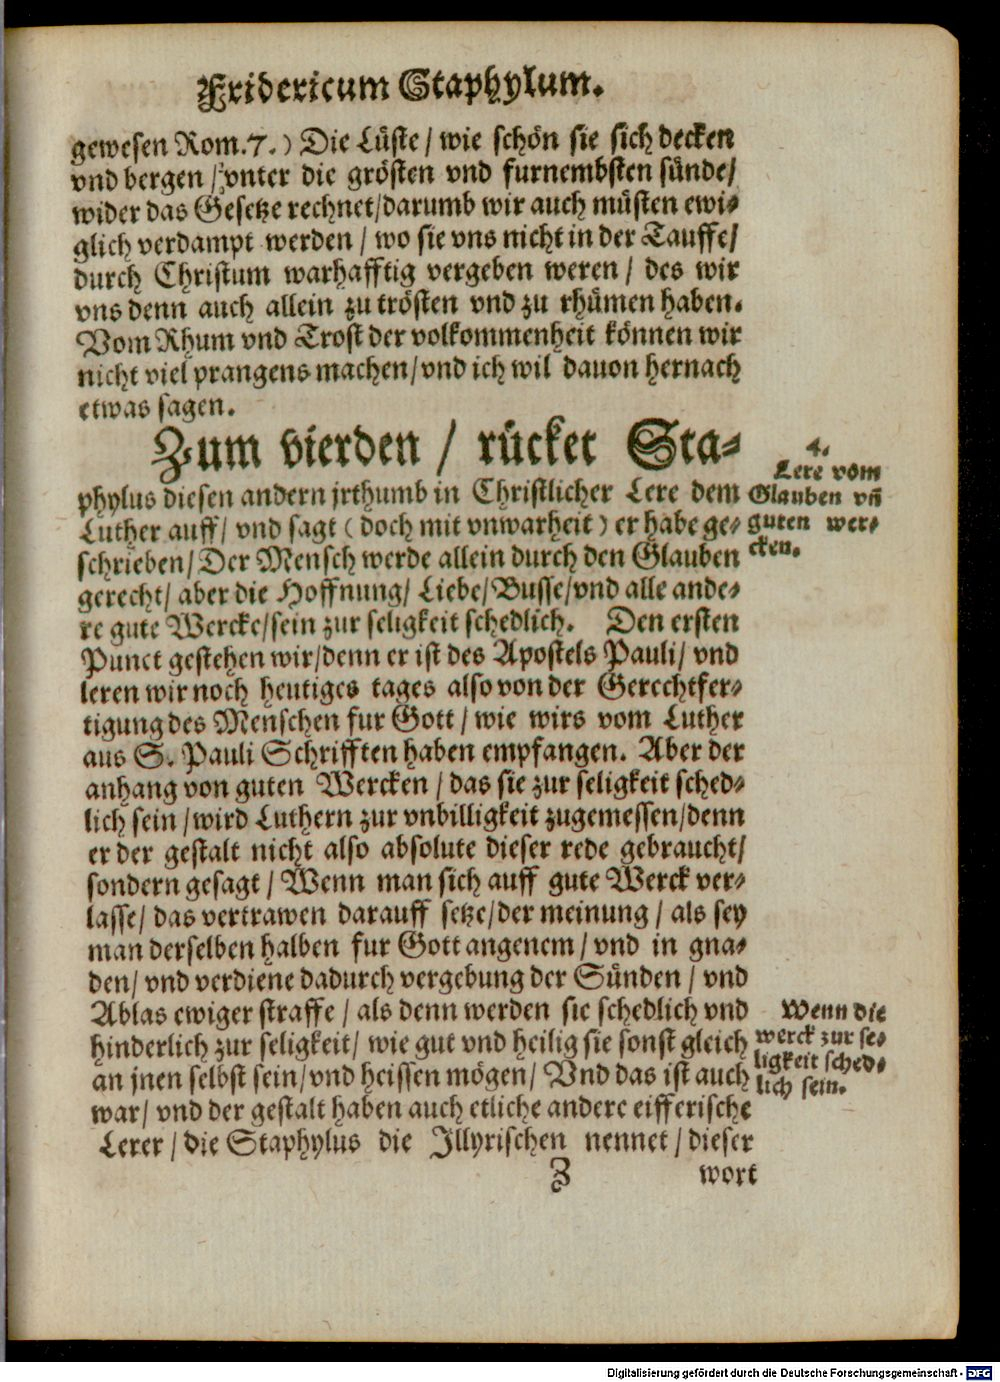 Fridericum Staphylum.
gewesen Rom.7.) Die Lüste/ wie schön sie sich decken
vnd bergen / vnter die grösten vnd furnembsten sünde/
wider das Gesetze rechnet/darumb wir auch müsten ewi-
glich verdampt werden / wo sie vns nicht in der Tauffe/
durch Christum warhafftig vergeben weren / des wir
vns denn auch allein zu trösten vnd zu rhümen haben.
Vom Rhum vnd Trost der volkommenheit können wir
nicht viel prangens machen/vnd ich wil dauon hernach
etwas sagen.
Zum vierden / rücket Sta-
phylus diesen andern jrthumb in Christlicher Lere dem
Luther auff/ vnd sagt ( doch mit vnwarheit ) er habe ge-
schrieben/ Der Mensch werde allein durch den Glauben
gerecht/ aber die Hoffnung/ Liebe/ Busse/vnd alle ande-
re gute Wercke/sein zur seligkeit schedlich. Den ersten
Punct gestehen wir/denn er ist des Apostels Pauli/ vnd
leren wir noch heutiges tages also von der Gerechtfer-
tigung des Menschen fur Gott / wie wirs vom Luther
aus S. Pauli Schrifften haben empfangen. Aber der
anhang von guten Wercken / das sie zur seligkeit sched-
lich sein / wird Luthern zur vnbilligkeit zugemessen/denn
er der gestalt nicht also absolute dieser rede gebraucht/
sondern gesagt / Wenn man sich auff gute Werck ver-
lasse/ das vertrawen darauff setze/der meinung / als sey
man derselben halben fur Gott angenem / vnd in gna-
den/ vnd verdiene dadurch vergebung der Sünden / vnd
Ablas ewiger straffe / als denn werden sie schedlich vnd
hinderlich zur seligkeit/ wie gut vnd heilig sie sonst gleich
an jnen selbst sein/vnd heissen mögen/ Vnd das ist auch
war/ vnd der gestalt haben auch etliche andere eifferische
Lerer / die Staphylus die Illyrischen nennet / dieser
Z wort
4.
Lere vom
Glauben vñ
guten wer-
cken.
Wenn die
werck zur se-
ligkeit sched-
lich sein.
Digitalisierung gefördert durch die Deutsche Forschungsgemeinschaft - DFG